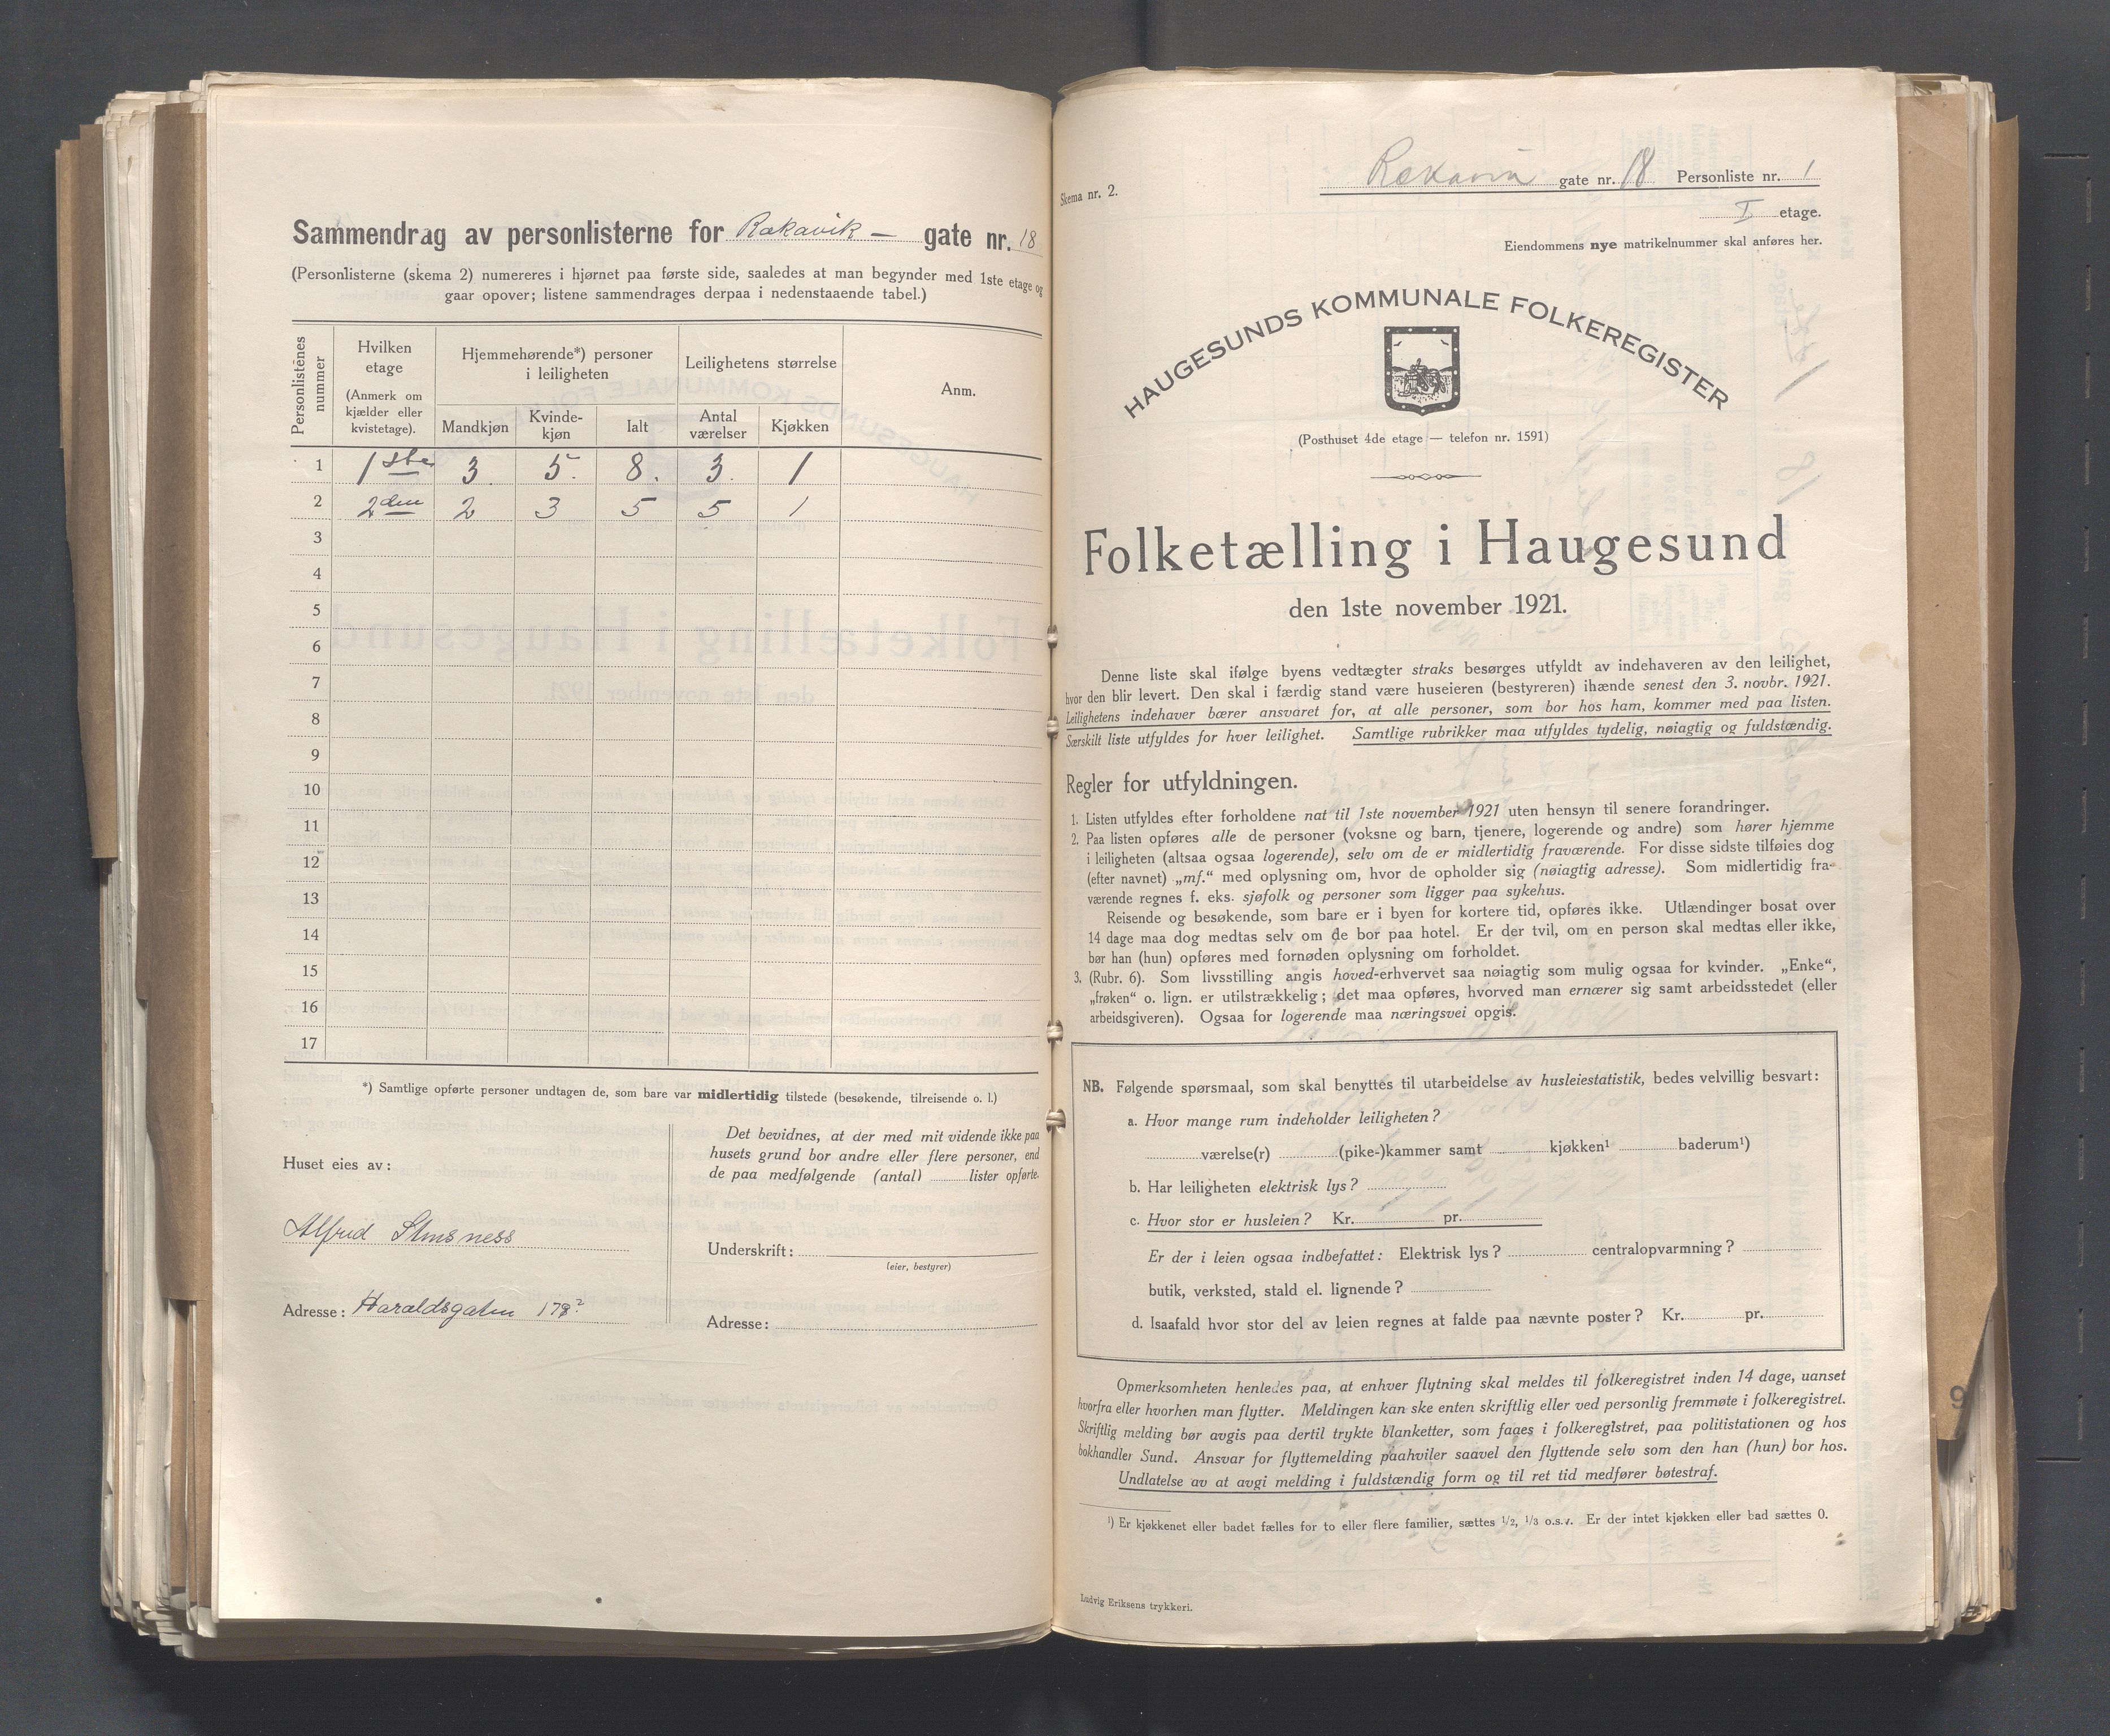 Sammendrag av personlisterne for Rakavik — gate nr. 18
(Personlisterne (skema 2) numereres i hjørnet paa første side, saaledes at man begynder med 1ste etage og
gaar opover; listene sammendrages derpaa i nedenstaaende tabel.)
Personlistenes nummer
Hvilken etage
(Anmerk om kjælder eller kvistetage).
Hjemmehørende*) personer i leiligheten
Leilighetens størrelse
Anm.
Mandkjøn Kvinde-kjøn Ialt Antal værelser Kjøkken
1 1ste 3. 5. 8. 3. 1
2 2den 2 3 5 5 1
3
4
5
6
7
8
9
10
11
12
13
14
15
16
17
*) Samtlige opførte personer undtagen de, som bare var midlertidig tilstede (besøkende, tilreisende o. l.)
Huset eies av:
Alfred
Adresse: Haraldsgaten
Det bevidnes, at der med mit vidende ikke paa
husets grund bor andre eller flere personer, end
de paa medfølgende (antal) lister opførte.
Underskrift:
(eier, bestyrer)
Adresse:
Skema nr. 2.
gate nr. 18 Personliste nr. 1
I etage.
Eiendommens nye matrikelnummer skal anføres her.
HAUGESUNDS KOMMUNALE FOLKEREGISTER
(Posthuset 4de etage — telefon nr. 1591)
Folketælling i Haugesund
den 1ste november 1921.
Denne liste skal ifølge byens vedtægter straks besørges utfyldt av indehaveren av den leilighet,
hvor den blir levert. Den skal i færdig stand være huseieren (bestyreren) ihænde senest den 3. novbr. 1921.
Leilighetens indehaver bærer ansvaret for, at alle personer, som bor hos ham, kommer med paa listen.
Særskilt liste utfyldes for hver leilighet. Samtlige rubrikker maa utfyldes tydelig, nøiagtig og fuldstændig.
Regler for utfyldningen.
1. Listen utfyldes efter forholdene nat til 1ste november 1921 uten hensyn til senere forandringer.
2. Paa listen opføres alle de personer (voksne og barn, tjenere, logerende og andre) som hører hjemme
i leiligheten (altsaa ogsaa logerende), selv om de er midlertidig fraværende. For disse sidste tilføies dog
(efter navnet) „mf.“ med oplysning om, hvor de opholder sig (nøiagtig adresse). Som midlertidig fra-
værende regnes f. eks. sjøfolk og personer som ligger paa sykehus.
Reisende og besøkende, som bare er i byen for kortere tid, opføres ikke. Utlændinger bosat over
14 dage maa dog medtas selv om de bor paa hotel. Er der tvil, om en person skal medtas eller ikke,
bør han (hun) opføres med fornøden oplysning om forholdet.
3. (Rubr. 6). Som livsstilling angis hoved-erhvervet saa nøiagtig som mulig ogsaa for kvinder. „Enke“,
„frøken“ o. lign. er utilstrækkelig; det maa opføres, hvorved man ernærer sig samt arbeidsstedet (eller
arbeidsgiveren). Ogsaa for logerende maa næringsvei opgis.
NB. Følgende spørsmaal, som skal benyttes til utarbeidelse av husleiestatistik, bedes velvillig besvart:
a. Hvor mange rum indeholder leiligheten?
værelse(r) (pike-)kammer samt kjøkken¹ baderum¹)
b. Har leiligheten elektrisk lys?
c. Hvor stor er husleien? Kr. pr.
Er der i leien ogsaa indbefattet: Elektrisk lys? centralopvarmning?
butik, verksted, stald el. lignende?
d. Isaafald hvor stor del av leien regnes at falde paa nævnte poster? Kr. pr.
Opmerksomheten henledes paa, at enhver flytning skal meldes til folkeregistret inden 14 dage, uanset
hvorfra eller hvorhen man flytter. Meldingen kan ske enten skriftlig eller ved personlig fremmøte i folkeregistret.
Skriftlig melding bør avgis paa dertil trykte blanketter, som faaes i folkeregistret, paa politistationen og hos
bokhandler Sund. Ansvar for flyttemelding paahviler saavel den flyttende selv som den han (hun) bor hos.
Undlatelse av at avgi melding i fuldstændig form og til ret tid medfører bøtestraf.
¹) Er kjøkkenet eller badet fælles for to eller flere familier, sættes 1/2, 1/3 o.s.v. Er der intet kjøkken eller bad sættes 0.
Ludvig Eriksens trykkeri.